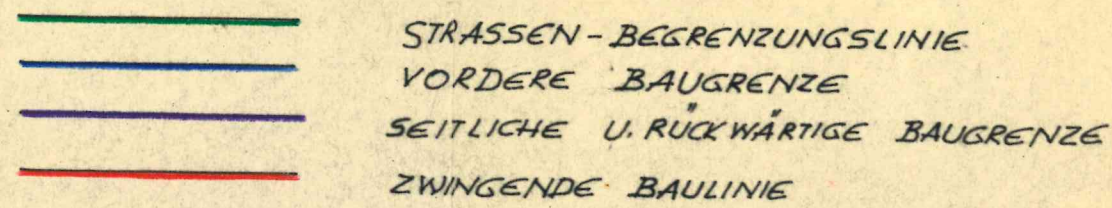 STRASSEN-BEGRENZUNGSLINIE
VORDERE BAUGRENZE
SEITLICHE U. RÜCKWÄRTIGE BAUGRENZE
ZWINGENDE BAULINIE